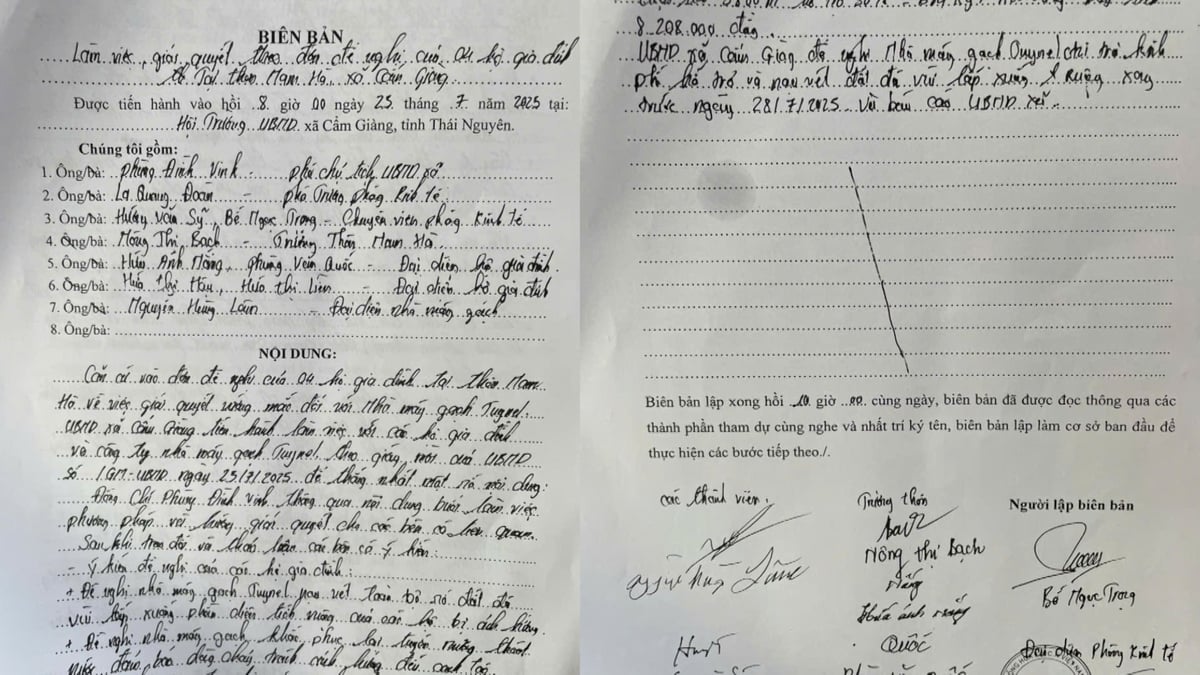 BIÊN BẢN
Làm việc, giải quyết theo đơn đề nghị của 04 hộ gia đình
tại thôn Nam Hà, xã Cẩm Giàng
Được tiến hành vào hồi 8 giờ 00 ngày 25 tháng 7 năm 2025 tại:
Hội Trường UBND xã Cẩm Giàng, tỉnh Thái Nguyên.
Chúng tôi gồm:
1. Ông/bà: Phùng Đình Vinh - phó chủ tịch UBND xã
2. Ông/bà: La Quang Đoàn - phó Trưởng phòng Kinh tế
3. Ông/bà: Hoàng Văn Sỹ, Bế Ngọc Trọng - Chuyên viên phòng Kinh tế
4. Ông/bà: Nông Thị Bạch - Trưởng Thôn Nam Hà
5. Ông/bà: Hứa Ánh Nắng, Phùng Văn Quốc - Đại diện hộ gia đình
6. Ông/bà: Hứa Thị, Hứa Thị Liên - Đại diện hộ gia đình
7. Ông/bà: Nguyễn Hùng - Đại diện nhà máy gạch
8. Ông/bà:
NỘI DUNG:
Căn cứ vào đơn đề nghị của 04 hộ gia đình tại thôn Nam
Hà về việc giải quyết vướng mắc đối với Nhà máy gạch Tuynel.
UBND xã Cẩm Giàng tiến hành làm việc với các hộ gia đình
và công ty nhà máy gạch Tuynel theo giấy mời của UBND
Số /GM-UBND ngày 23/7/2025 để thống nhất một số nội dung:
Đồng Chí Phùng Đình Vinh thông qua nội dung buổi làm việc
phương pháp và hướng giải quyết cho các bên có liên quan.
Sau khi trao đổi và thảo luận các bên có ý kiến:
- Ý kiến đề nghị của các hộ gia đình:
+ Đề nghị nhà máy gạch Tuynel nạo vét toàn bộ số đất đá
vùi lấp xuống phần diện tích ruộng của các hộ bị ảnh hưởng
+ Đề nghị nhà máy gạch khắc phục lại tuyến mương thoát
nước đảm bảo dòng chảy tránh ảnh hưởng đến canh tác
8.208.000 đồng.
UBND xã Cẩm Giàng đề nghị Nhà máy gạch Tuynel chi trả kinh
phí hỗ trợ và nạo vét đất đá vùi lấp xuống ruộng xong
trước ngày 28/7/2025 và báo cáo UBND xã
Biên bản lập xong hồi 10 giờ 00 cùng ngày, biên bản đã được đọc thông qua các
thành phần tham dự cùng nghe và nhất trí ký tên, biên bản lập làm cơ sở ban đầu để
thực hiện các bước tiếp theo./.
các thành viên. Trưởng thôn Người lập biên bản
Nông Thị Bạch
Bế Ngọc Trọng
Nắng
Hứa Ánh Nắng
Quốc
Đại diện Phòng Kinh tế